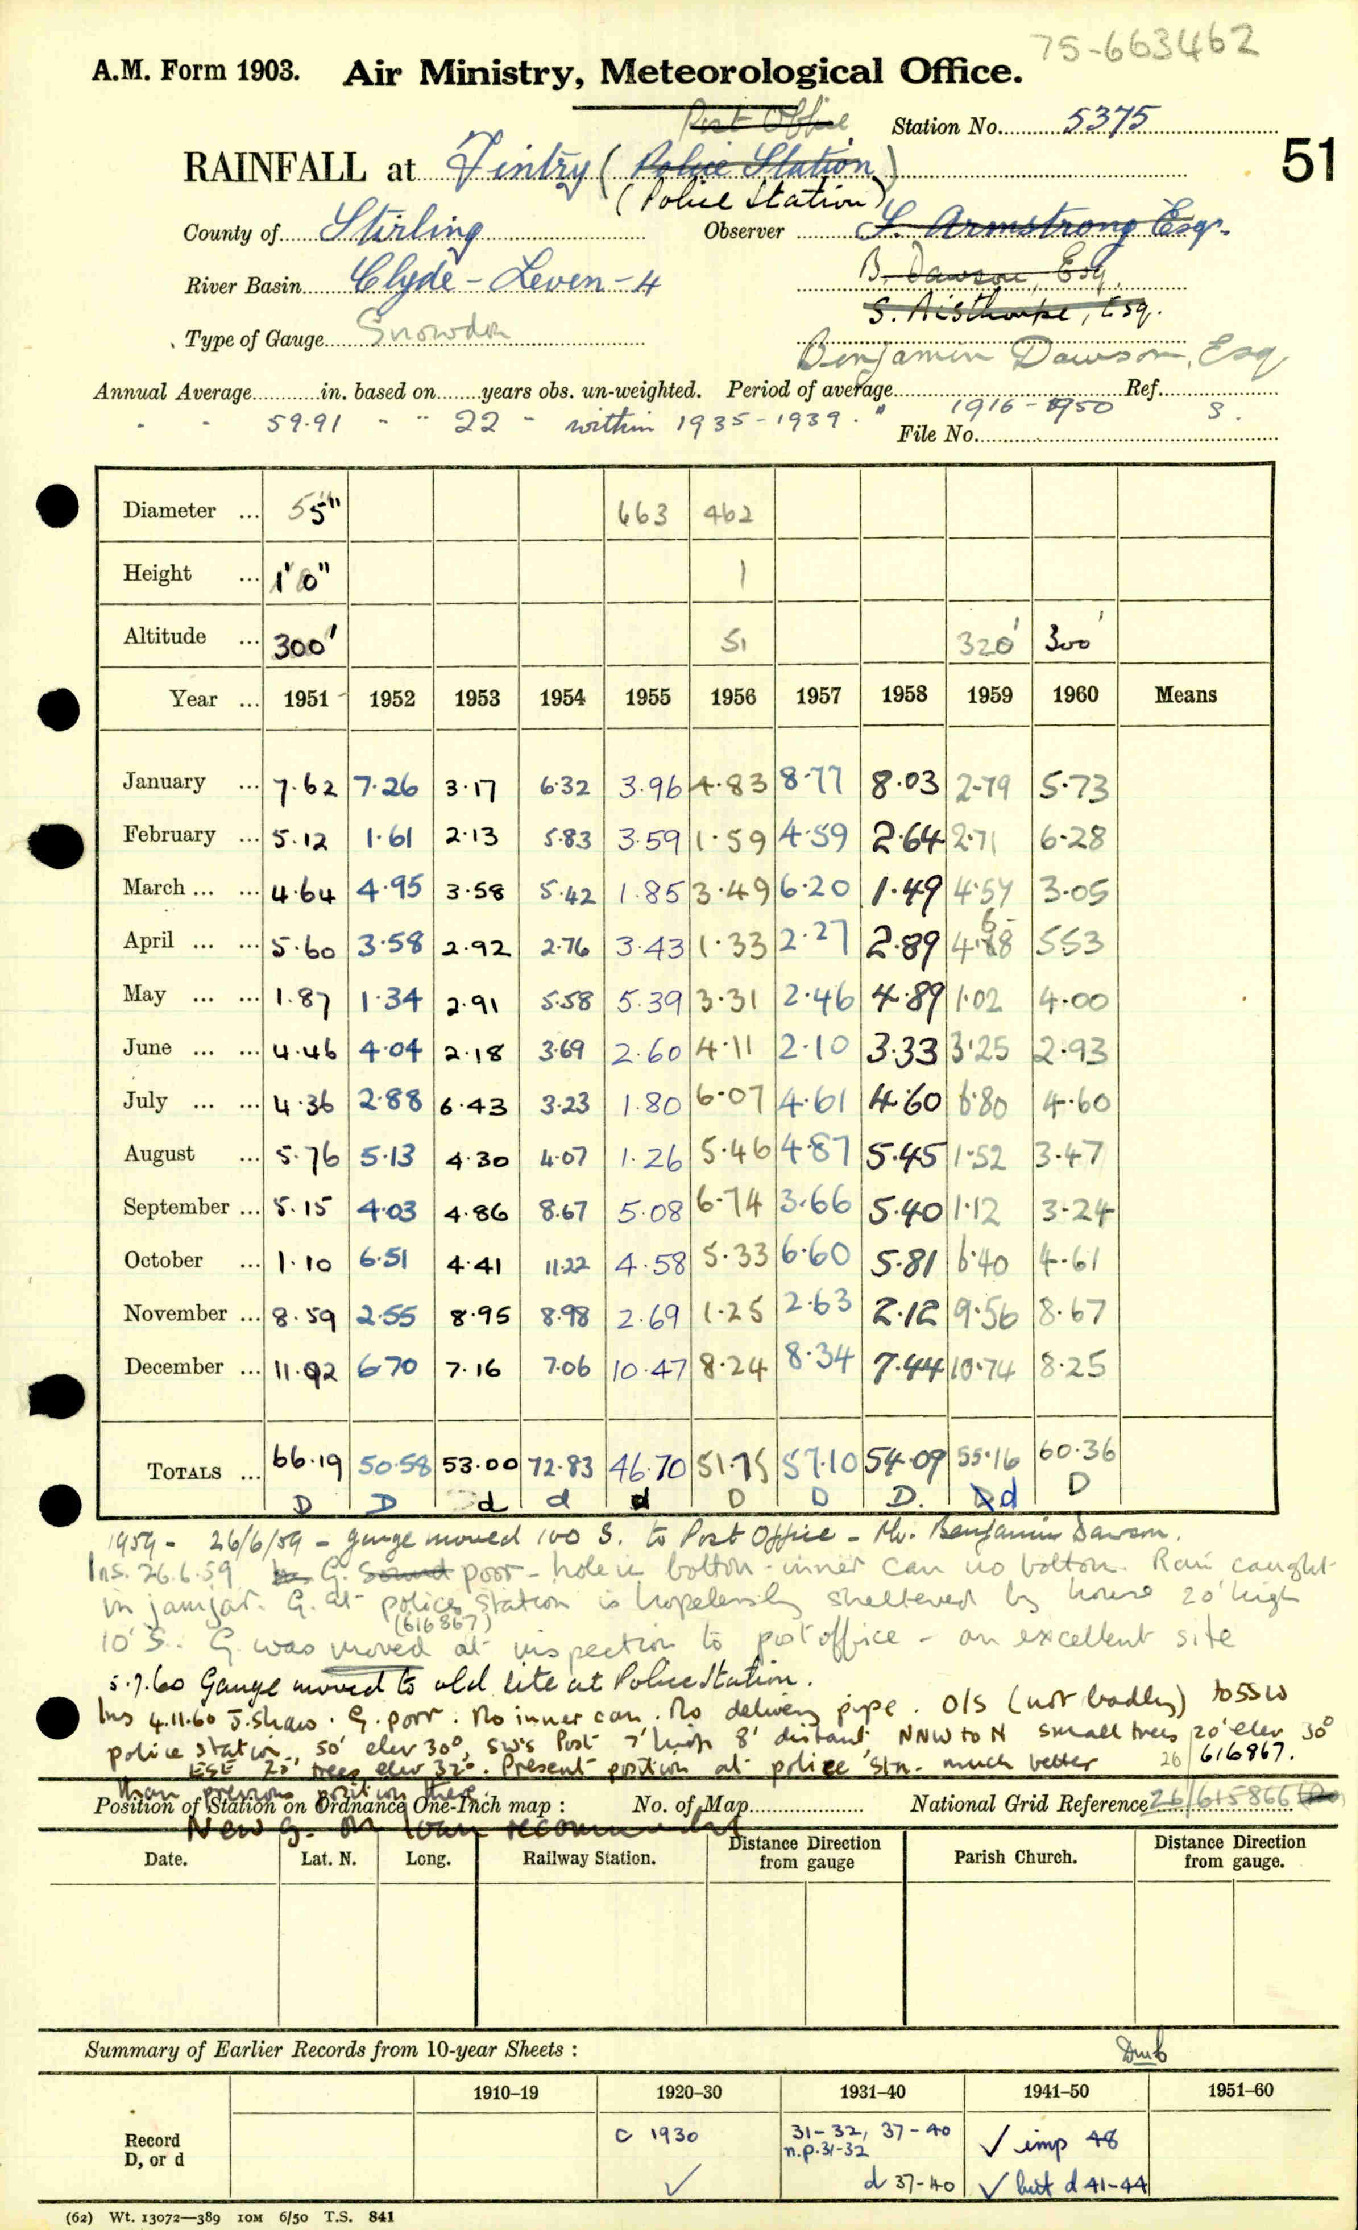 75-663462
A.M. Form 1903. Air Ministry, Meteorological Office.
Post Office
Station No. 5375
51
RAINFALL at Fintry (Police Station)
(Police Station)
County of Stirling Observer S. Armstrong Esqr.
River Basin Clyde - Leven - 4 B. Dawson, Esq.
S. Aisthorpe, Esq.
Type of Gauge Snowdon Benjamin Dawson, Esq
Annual Average in. based on years obs. un-weighted. Period of average Ref.
" " 59.91 " " 22 " within 1935-1939. " 1916-1950 S.
File No.
Diameter ... 5" 663 462
Height ... 1' 0" 1
Altitude ... 300' 51 320' 300'
Year ... 1951 1952 1953 1954 1955 1956 1957 1958 1959 1960 Means
January ... 7.62 7.26 3.17 6.32 3.96 4.83 8.77 8.03 2.79 5.73
February ... 5.12 1.61 2.13 5.83 3.59 1.59 4.59 2.64 2.71 6.28
March ... ... 4.64 4.95 3.58 5.42 1.85 3.49 6.20 1.49 4.57 3.05
April ... ... 5.60 3.58 2.92 2.76 3.43 1.33 2.27 2.89 4.68 5.53
May ... ... 1.87 1.34 2.91 5.58 5.39 3.31 2.46 4.89 1.02 4.00
June ... ... 4.46 4.04 2.18 3.69 2.60 4.11 2.10 3.33 3.25 2.93
July ... ... 4.36 2.88 6.43 3.23 1.80 6.07 4.61 4.60 6.80 4.60
August ... 5.76 5.13 4.30 4.07 1.26 5.46 4.87 5.45 1.52 3.47
September ... 5.15 4.03 4.86 8.67 5.08 6.74 3.66 5.40 1.12 3.24
October ... 1.10 6.51 4.41 11.22 4.58 5.33 6.60 5.81 6.40 4.61
November ... 8.59 2.55 8.95 8.98 2.69 1.25 2.63 2.12 9.56 8.67
December ... 11.92 6.70 7.16 7.06 10.47 8.24 8.34 7.44 10.74 8.25
TOTALS ... 66.19 50.58 53.00 72.83 46.70 51.75 57.10 54.09 55.16 60.36
D D d d d D D D. d D
1959 - 26/6/59 - gauge moved 100 S. to Post Office - Mr. Benjamin Dawson.
Ins. 26.6.59 G. Sound poor - hole in bottom - inner can no bottom. Rain caught
in jamjar. G. at police station is hopelessly sheltered by house 20' high
(616867)
10' S. G. was moved at inspection to post office - an excellent site
5.7.60 Gauge moved to old site at Police Station.
Ins 4.11.60 J. Shaw. G. poor. No inner can. No delivery pipe. O/S (not badly) to SSW
police station, 50' elev 30°, SW's Post 7' high 8' distant, NNW to N small trees 20' elev 30°
ESE 25' trees elev 32°. Present position at police Stn. much better 26/616867.
than previous position there.
Position of Station on Ordnance One-Inch map : No. of Map National Grid Reference 26/615866
New G. on loan recommended
Date. Lat. N. Long. Railway Station. Distance Direction from gauge Parish Church. Distance Direction from gauge.
Summary of Earlier Records from 10-year Sheets :
1910-19 1920-30 1931-40 1941-50 1951-60
Record D, or d
c 1930 31-32, 37-40 ✓ imp 48
n.p. 31-32
✓ d 37-40 ✓ but d 41-44
(62) Wt. 13072—389 10M 6/50 T.S. 841